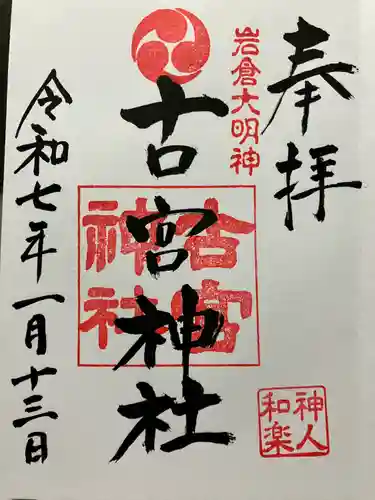 奉拝
岩倉大明神
古宮神社
古宮神社
神人和楽
令和七年一月十三日